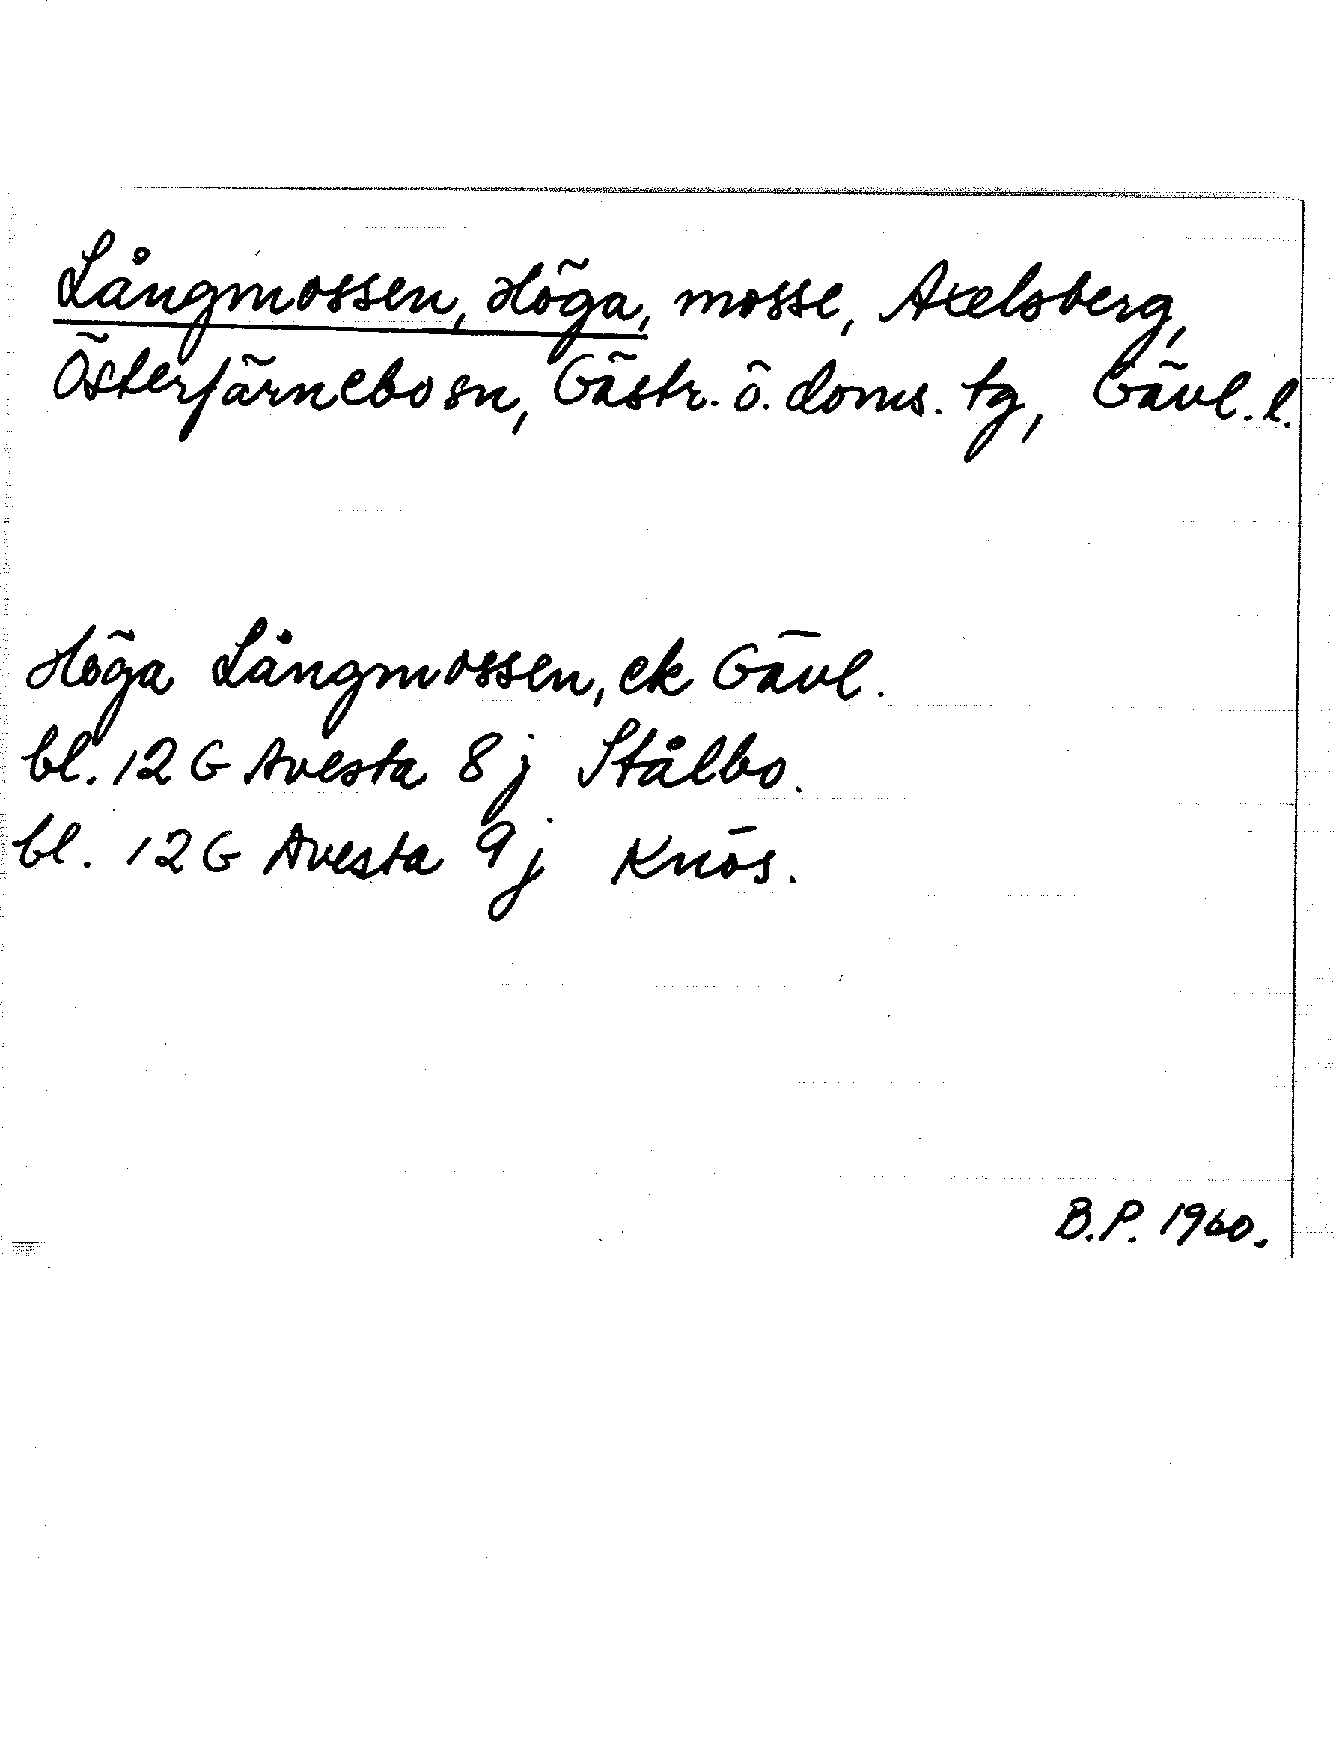 Långmossen, Höga, mosse, Axelsberg,
Österfärnebo sn, Gästr. ö. doms. tg, Gävl. l.
Höga Långmossen, ek Gävl.
bl. 12 G Avesta 8 j Stålbo.
bl. 12 G Avesta 9 j Knös.
B.P. 1960.